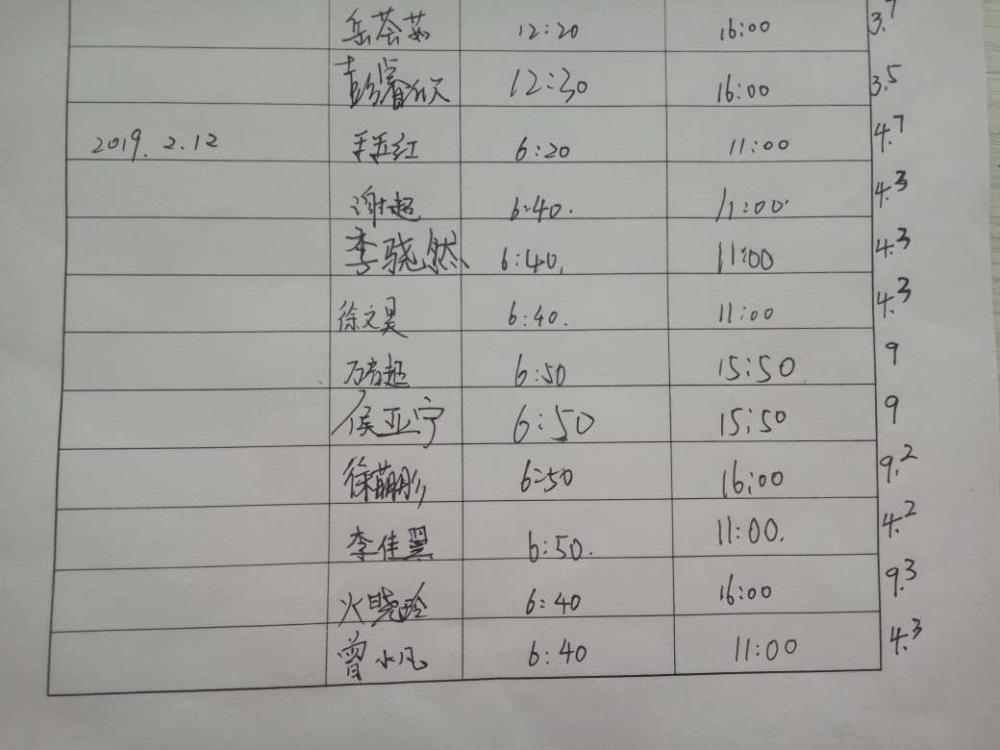 岳荟茹 12:20 16:00 3.7
彭睿欣 12:30 16:00 3.5
2019.2.12 红 6:20 11:00 4.7
谢超 6:40. 11:00. 4.3
李骁然 6:40. 11:00 4.3
徐文昊 6:40. 11:00 4.3
6:50 15:50 9
侯亚宁 6:50 15:50 9
徐萌彤 6:50 16:00 9.2
李佳翼 6:50. 11:00. 4.2
火晓玲 6:40 16:00 9.3
曾小凡 6:40 11:00 4.3